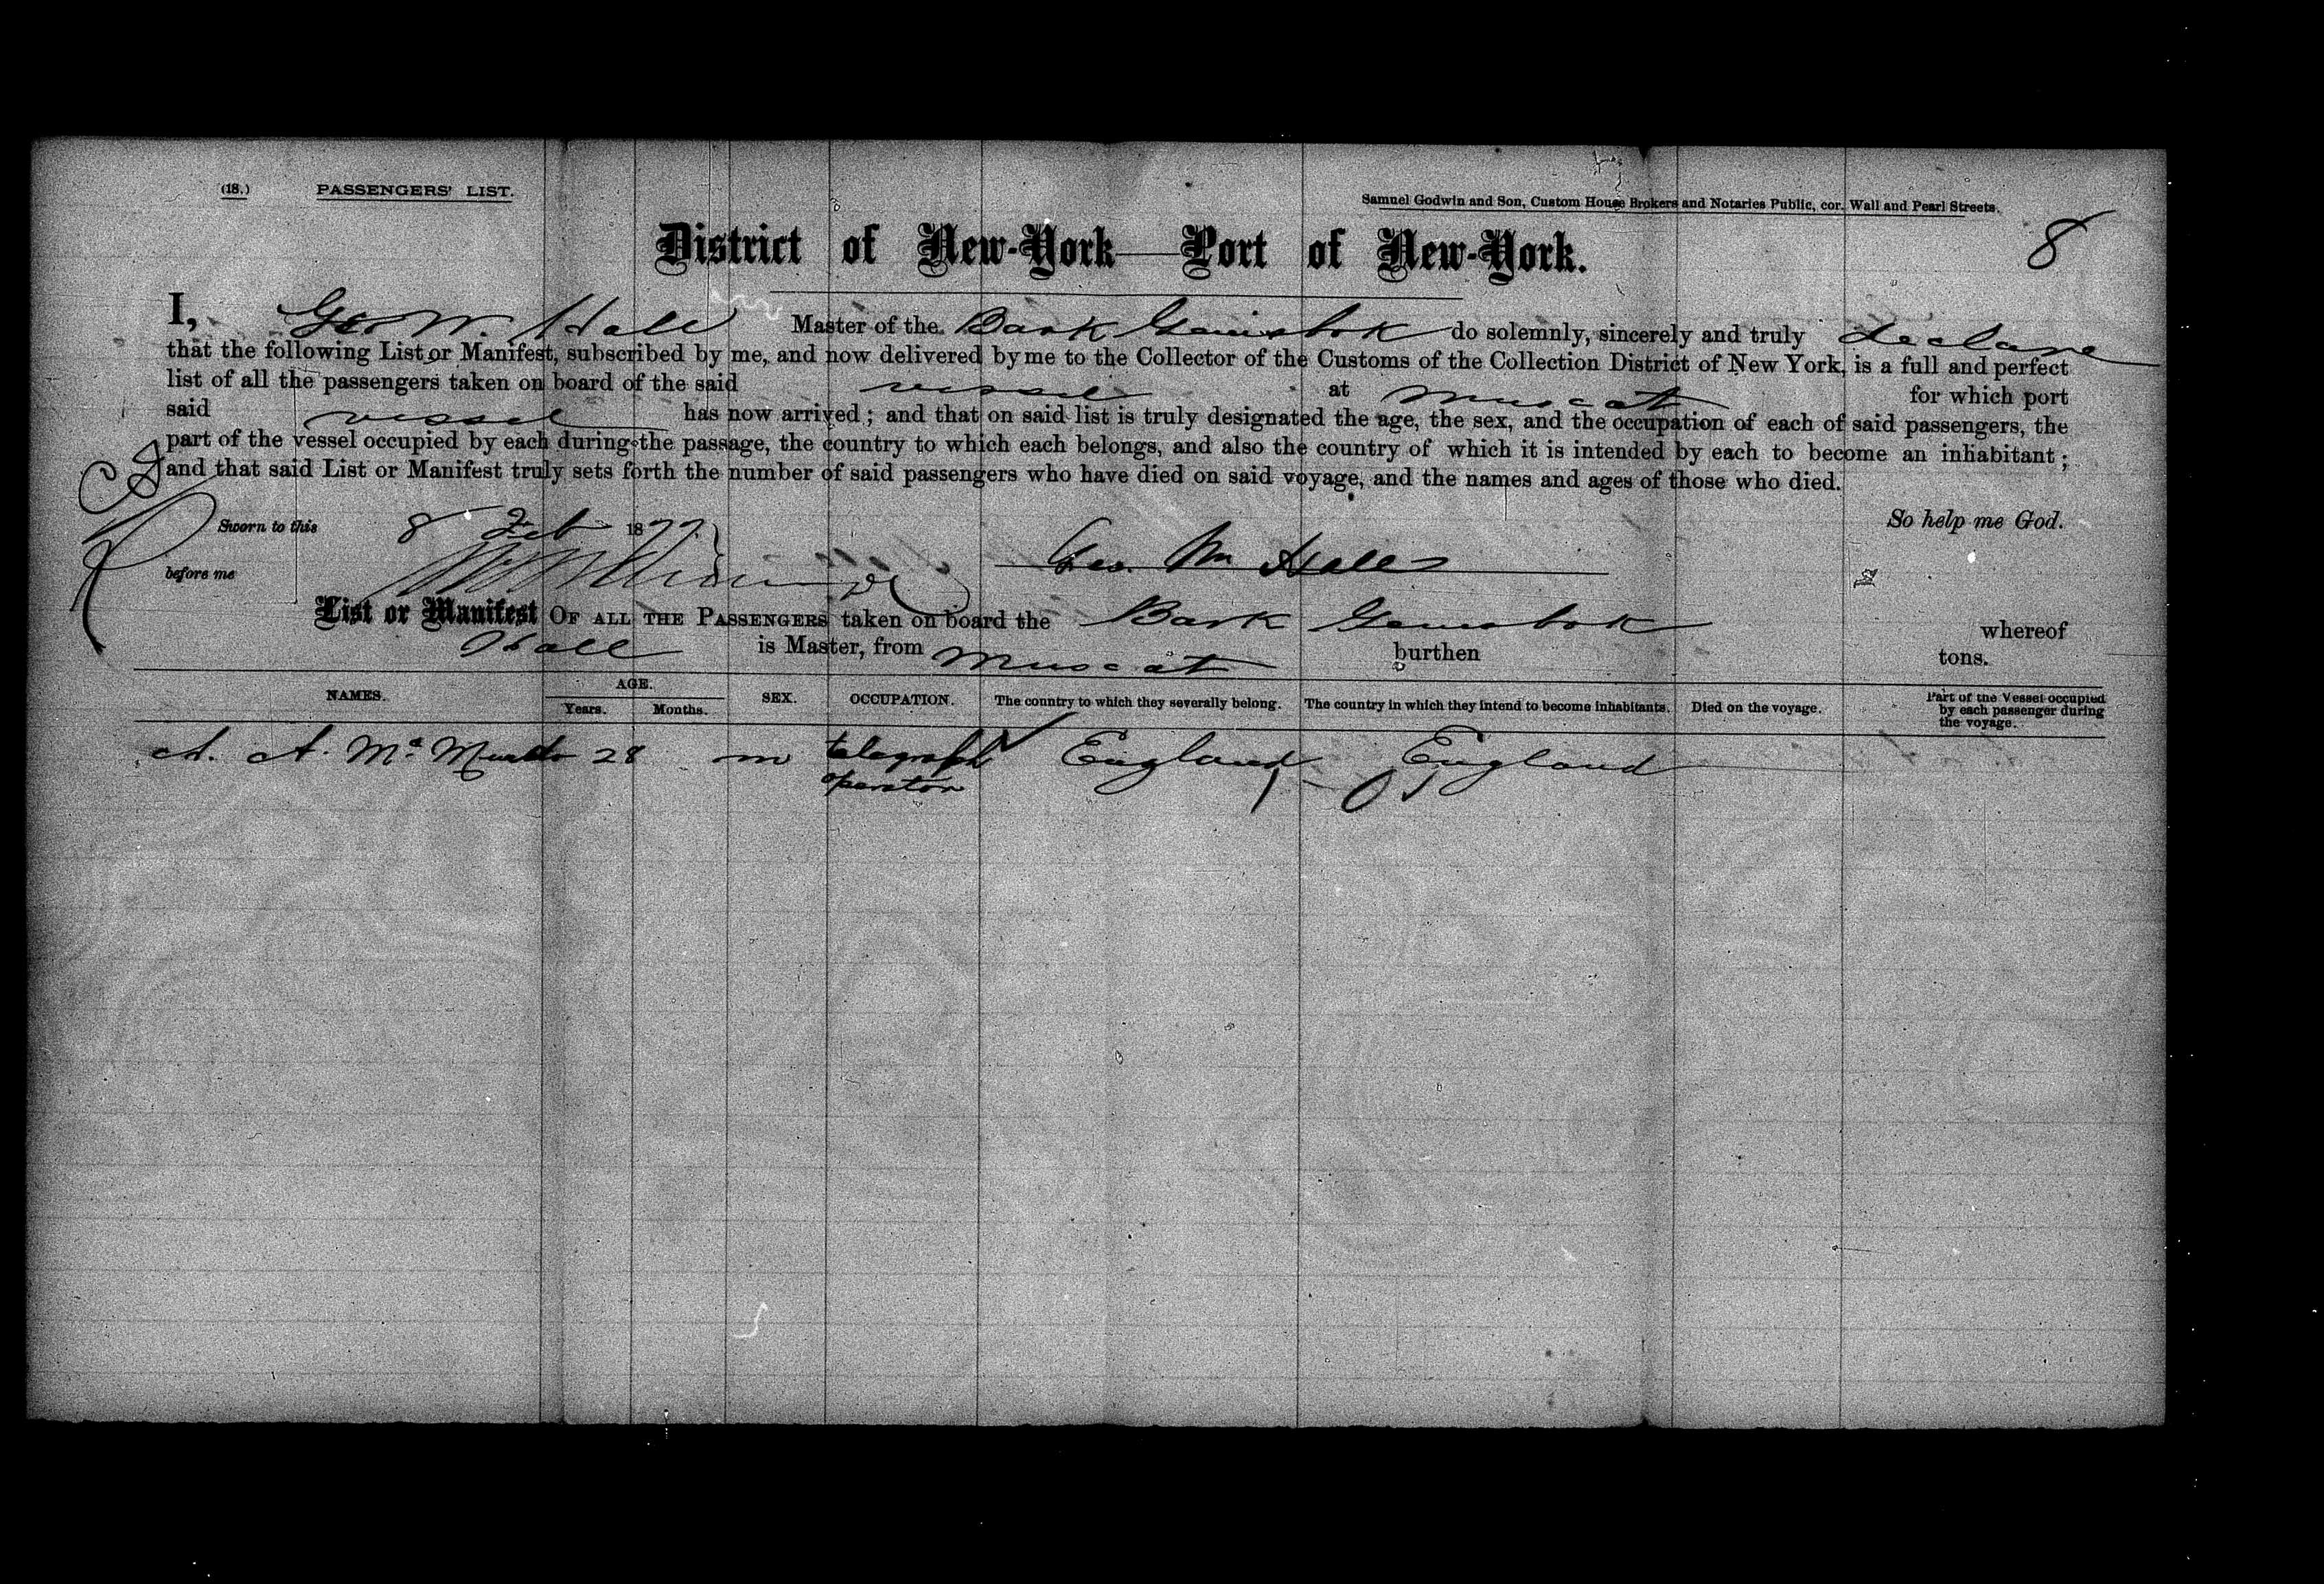 (18.) PASSENGERS' LIST.
Samuel Godwin and Son, Custom House Brokers and Notaries Public, cor. Wall and Pearl Streets.
8
District of New-York—Port of New-York.
I, Geo W. Hall Master of the Bark do solemnly, sincerely and truly declare
that the following List or Manifest, subscribed by me, and now delivered by me to the Collector of the Customs of the Collection District of New York, is a full and perfect
list of all the passengers taken on board of the said vessel at Muscat for which port
said vessel has now arrived; and that on said list is truly designated the age, the sex, and the occupation of each of said passengers, the
part of the vessel occupied by each during the passage, the country to which each belongs, and also the country of which it is intended by each to become an inhabitant;
and that said List or Manifest truly sets forth the number of said passengers who have died on said voyage, and the names and ages of those who died.
So help me God.
Sworn to this 8 Feb 1877
before me
Geo. W Hall
List or Manifest OF ALL THE PASSENGERS taken on board the Bark whereof
Hall is Master, from Muscat burthen tons.
NAMES. AGE. SEX. OCCUPATION. The country to which they severally belong. The country in which they intend to become inhabitants. Died on the voyage. Part of the Vessel occupied by each passenger during the voyage.
Years. Months.
A. A. 28 m telegraph England England
operator